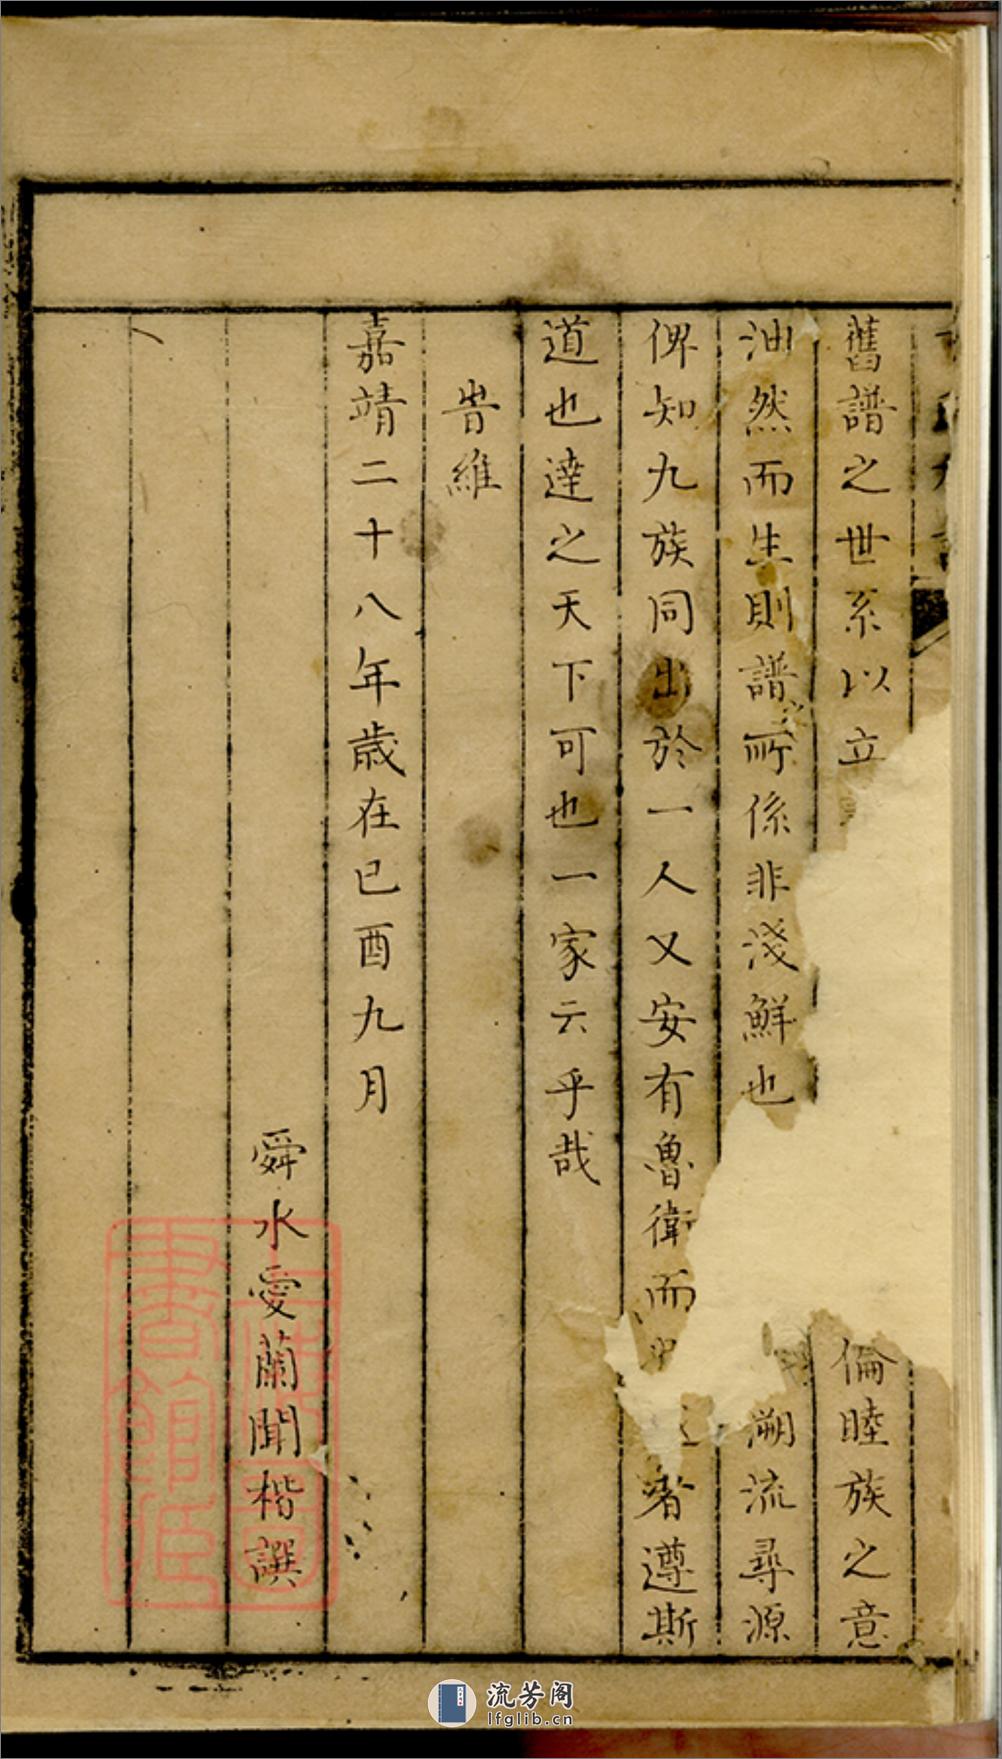 舊譜之世系以立倫睦族之意
油然而生則譜所係非淺鮮也溯流尋源
俾知九族同出於一人又安有魯衛而者遵斯
道也達之天下可也一家云乎哉
旹維
嘉靖二十八年歲在已酉九月
舜水愛蘭聞楷撰
上海圖書館藏
流芳阁
lfglib.cn